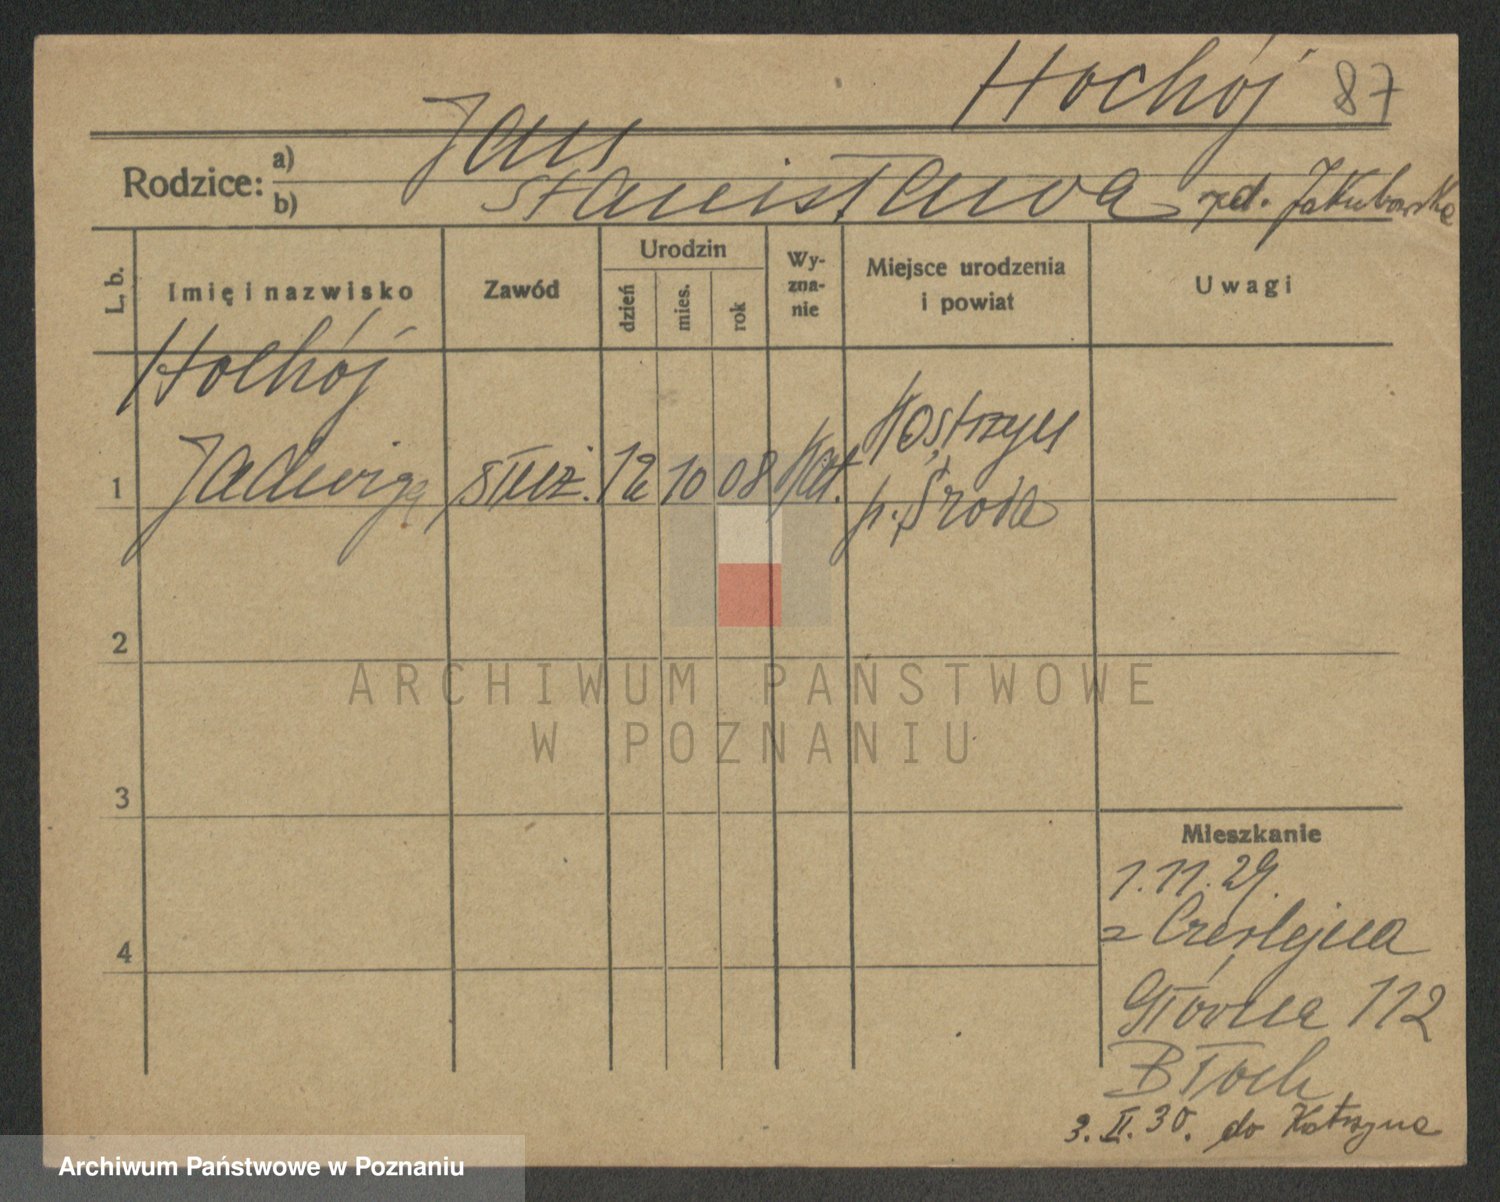 Hochój 87
Jan
Rodzice: a)
b) Stanisława rzd. Jakubowska
L. b.
Imię i nazwisko
Zawód
Urodzin
dzień
mies.
rok
Wy-
zna-
nie
Miejsce urodzenia
i powiat
Uwagi
Hochój
1 Jadwiga służ. 12 10 08 Kat. Kostrzyn
p. Środa
2
3
4
ARCHIWUM PAŃSTWOWE
W POZNANIU
Mieszkanie
1.11.29.
z Czerlejna
Główna 112
Błoch
3.II.30. do Kostrzyna
Archiwum Państwowe w Poznaniu